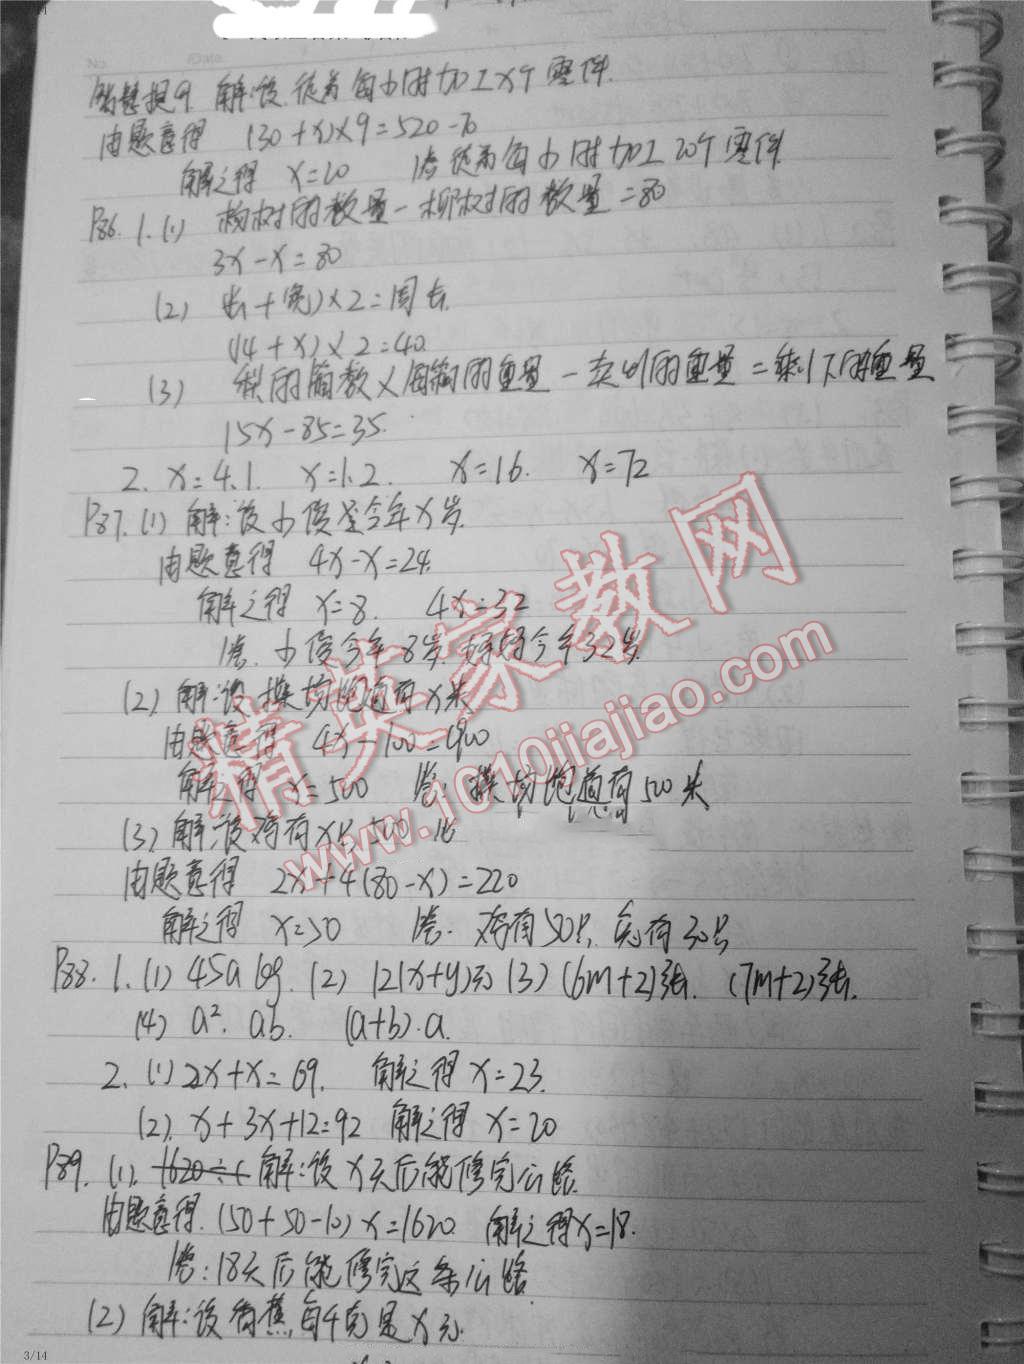 解：设徒弟每小时加工x个零件.
由题意得 (30+x)×9=520-70
解之得 x=20 答徒弟每小时加工20个零件
P86. 1.(1) 杨树的数量-柳树的数量=80
3x-x=80
(2) (长+宽)×2=周长.
(14+x)×2=40.
(3) 梨的箱数×每箱的重量-卖出的重量=剩下的重量
15x-85=35.
2. x=4.1. x=1.2. x=16. x=72
P87.(1) 解:设小俊今年x岁.
由题意得 4x-x=24.
解之得 x=8. 4x=32
答.小俊今年8岁.妈妈今年32岁.
(2) 解:设操场跑道有x米
由题意得 4x-100=1900
解之得 x=500 答:操场跑道有500米
(3) 解:设鸡有x只,
由题意得 2x+4(80-x)=220
解之得 x=50 答.鸡有50只,兔有30只
P88. 1.(1) 45a kg. (2) 12(x+y)元 (3) (6m+2)张. (7m+2)张.
(4) a². ab. (a+b)·a.
2.(1) 2x+x=69. 解之得 x=23.
(2). x+3x+12=92 解之得 x=20
P89.(1). 1620÷( 解:设x天后能修完公路.
由题意得.(50+50-10)x=1620. 解之得x=18.
答:18天后能修完这条公路
(2) 解:设香蕉每千克是x元.
精英家教网
www.1010jiajiao.com
3/14